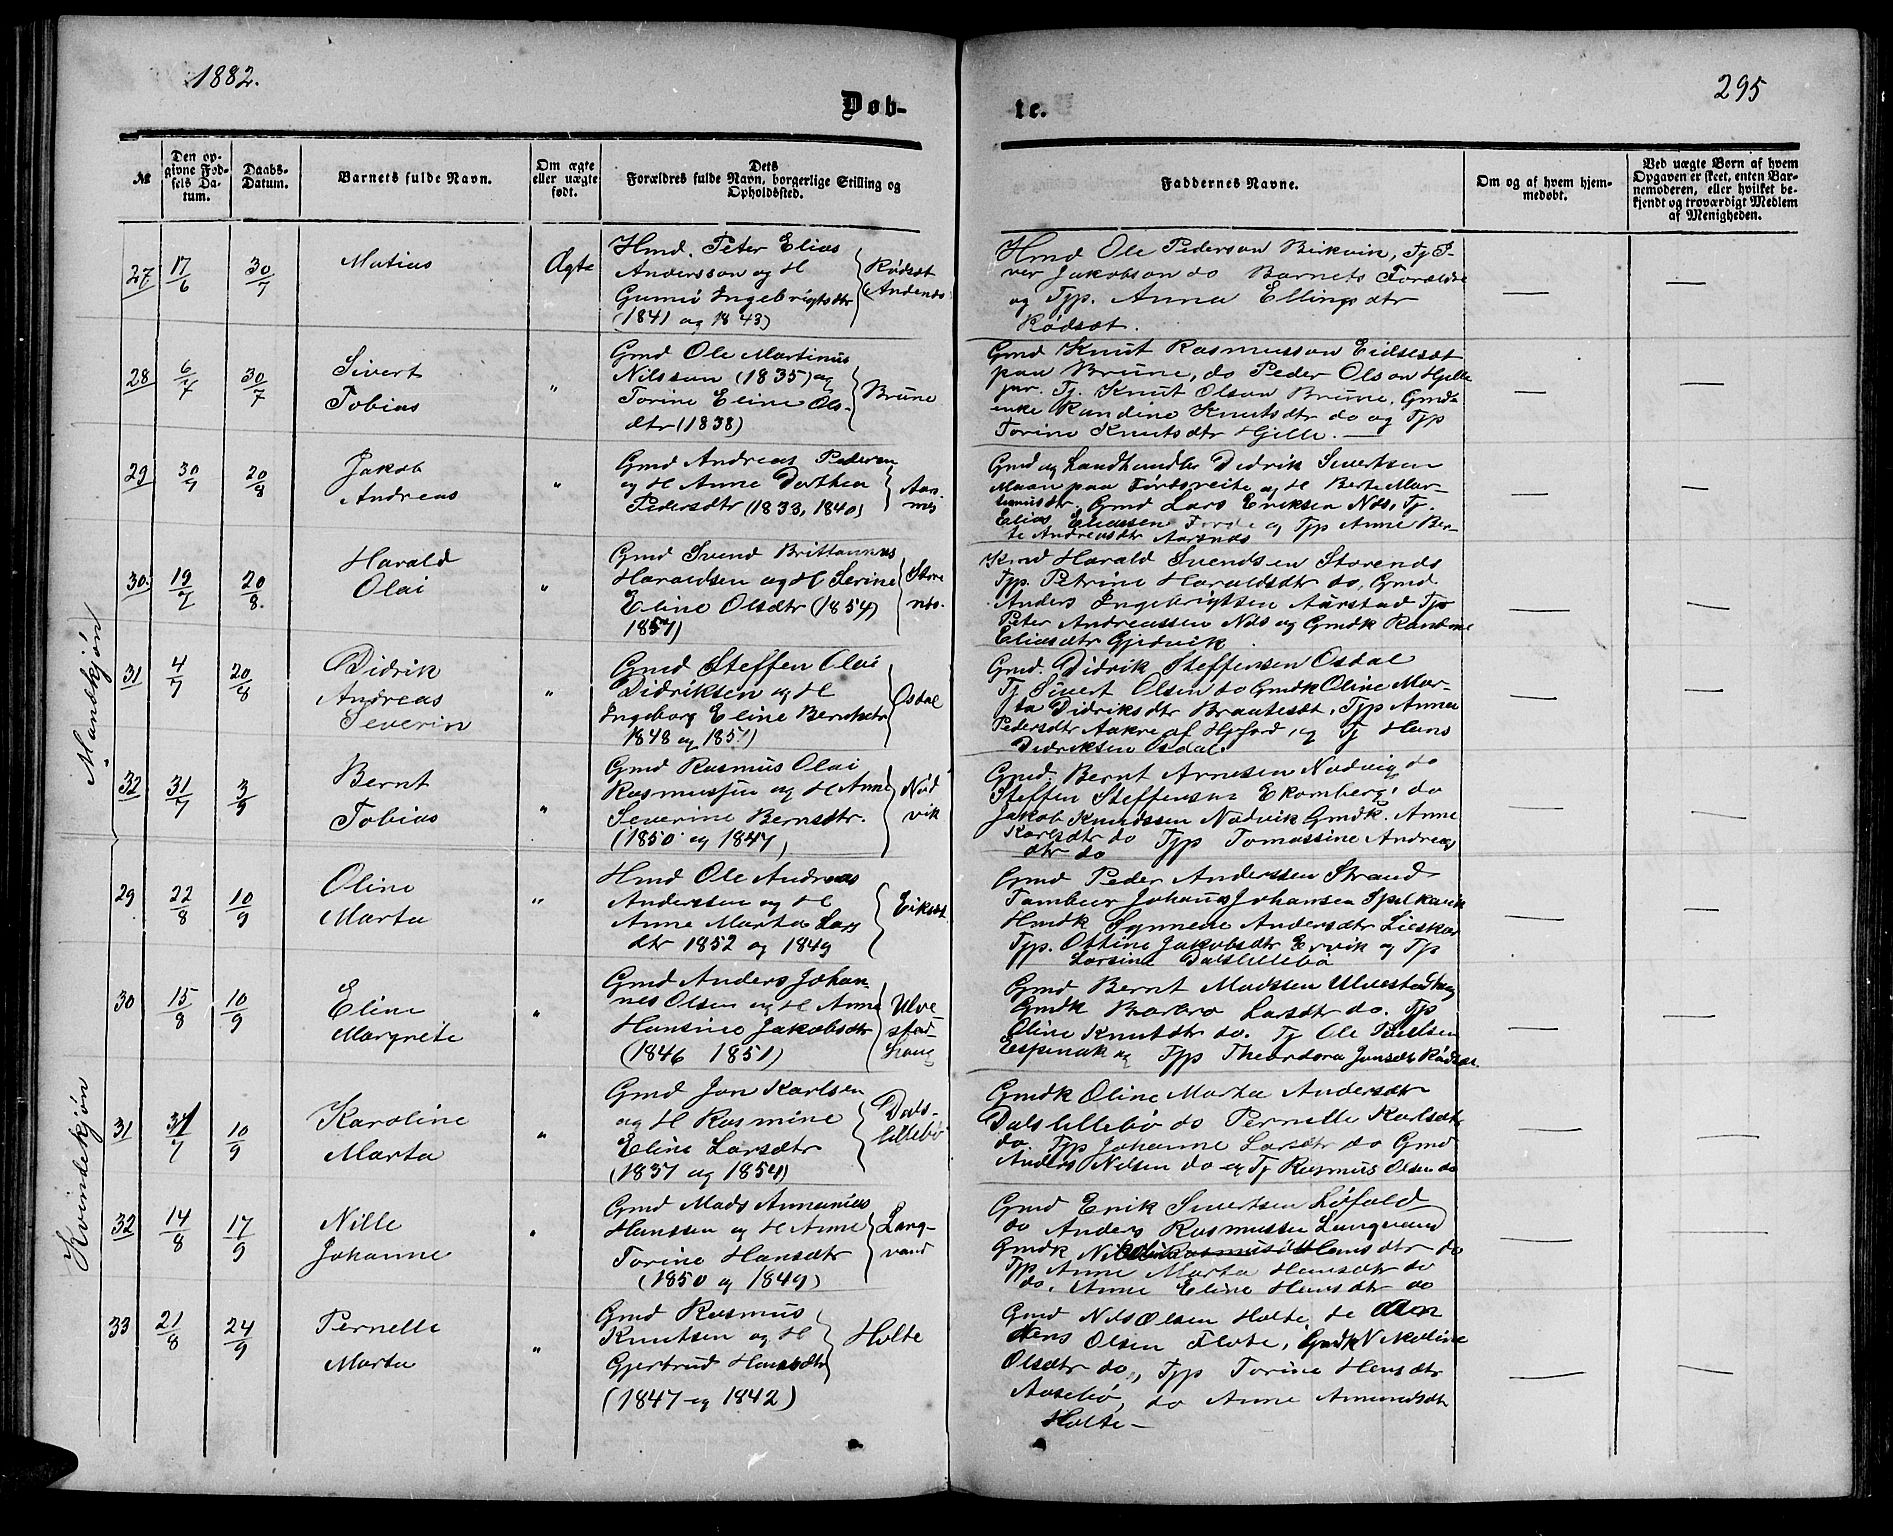 1882.
295
Døb-
te.
№
Den op-
givne Fød-
sels Da-
tum.
Daabs-
Datum.
Barnets fulde Navn.
Om ægte
eller uægte
født.
Dets
Forældres fulde Navn, borgerlige Stilling og
Opholdssted.
Faddernes Navne.
Om og af hvem hjem-
medøbt.
Ved uægte Børn af hvem
Opgaven er skeet, enten Bar-
nemoderen, eller hvilket be-
kjendt og troværdigt Medlem
af Menigheden.
Mandskjøn
27 17/6 30/7 Matias Ægte
Hmd. Peter Elias
Anderssøn og H
Gunnö Ingebrigtsdtr
(1841 og 1843)
Rødsæt
Andenæs
Hmd Ole Pederson Birkvin, Tj I-
ver Jakobson do Barnets Forældre
og Tjp. Anna Ellingsdtr
Rødsæt.
28 6/7 30/7 Sivert
Tobias "
Gmd Ole Martinus
Nilsson (1835) og
Torine Eline Ols-
dtr (1838)
Brune
Gmd Knut Rasmusson Eidsesæt
paa Brune, do Peder Olson Hjelle
jur. Tj. Knut Olson Brune, Gmd-
enke Randine Knutsdtr do og Tjp
Torine Knutsdtr Hjelle. —
29 30/7 20/8 Jakob
Andreas "
Gmd Andreas Pedersen
og H Anne Dorthea
Pedersdtr (1833, 1840)
Aars-
næs
Gmd og Landhandler Didrik Sivertsen
Maan paa Førdsreite og H Berte Mar-
tinusdtr, Gmd Lars Eriksen Næs, Tj.
Elias Eliassen Førde og Tjp Anne Ber-
te Andreasdtr Aarsnæs
30. 19/7 20/8. Harald
Olai "
Gmd Svend Brittannus
Haraldsen og H Serine
Eline Olsdtr (1854)
1857)
Store
næs.
Kmd Harald Svendsen Storenæs
Tjp. Petrine Haraldsdtr do, Gmd
Anders Ingebrigtsen Aarstad Tjp
Peter Andreassen Næs og Gmdk Randine
Eliasdtr Gjedvik
31 4/7 20/8 Didrik
Andreas
Severin "
Gmd Steffen Olai
Didriksen og H
Ingeborg Eline Berntsdtr
1848 og 1857)
Osdal
Gmd. Didrik Steffensen Osdal
Tj Sivert Olsen do Gmdk Oline Mar-
ta Didriksdtr Brautesæt, Tjp Anna
Pedersdtr Aakre af Hjørd, og Tj Hans
Didriksen Osdal.
32 31/7 3/9 Bernt
Tobias "
Gmd Rasmus Olai
Rasmussen og H Anne
Severine Berntsdtr.
(1850 og 1847)
Nød
vik
Gmd. Bernt Arnesen Nødvig do
Steffen Steffensen Ekornberg, do
Jakob Knudssen Nødvik Gmdk. Anne
Karlsdtr do Tjp Tomassine Andreas
dtr do
Kvindekjøn
29 22/8 10/9 Oline
Marta "
Hmd Ole Andreas
Anderssen og H
Anne Marta Lars
dtr 1852 og 1849
Eikset
Gmd Peder Anderssen Strand
Tambur Johanns Johansen Spilkavik
Hmdk Synneve Andersdtr Lieskar
Tjp. Ottine Jakobsdtr Ervik og Tjp
Larsine Dalslillebø
30 15/8 10/9 Eline
Margrete "
Gmd Anders Johan-
nes Olsen og H Anne
Hansine Jakobsdtr
(1846 1851)
Ulve
stad
haug
Gmd Bernt Madssen Ulvestadhaug
Gmdk Barbro Larsdtr do. Tjp
Oline Knutdtr do. Tj Ole Nielsen
Espenak og Tjp Theordora Jonsdtr Rødsæt
31 31/7 10/9 Karoline
Marta "
Gmd Jon Karlsen
og H Rasmine
Eline Larsdtr
(1837 og 1854)
Dals-
lillebø
Gmdk Oline Marta Andersdtr
Dalslillebø do Pernelle Karlsdtr
do, Tjp Johanne Larsdtr do Gmd
Anders Nilsen do og Tj Rasmus Olsen do
32 14/8 17/9 Nille
Johanne "
Gmd Mads Annanias
Hanssen og H Anne
Torine Hansdtr
(1850 og 1849)
Lang-
vand
Gmd Erik Sivertsen Løfold
do Anders Rasmussen Langvand
Gmdk Hansdtr do
Tjp Anne Marta Hansdtr do
do, Anne Eline Hansdtr do
33 21/8 24/9 Pernelle
Marta "
Gmd Rasmus
Knutsen og H
Gjertrud Hansdtr
(1847 og 1842)
Holte
Gmd Nils Olsen Holte, do
Hens Olsen Flote, Gmdk Nikoline
Olsdtr do, Tjp Torine Hansdtr
Aasebø, do Anne Amundsdtr
Holte —